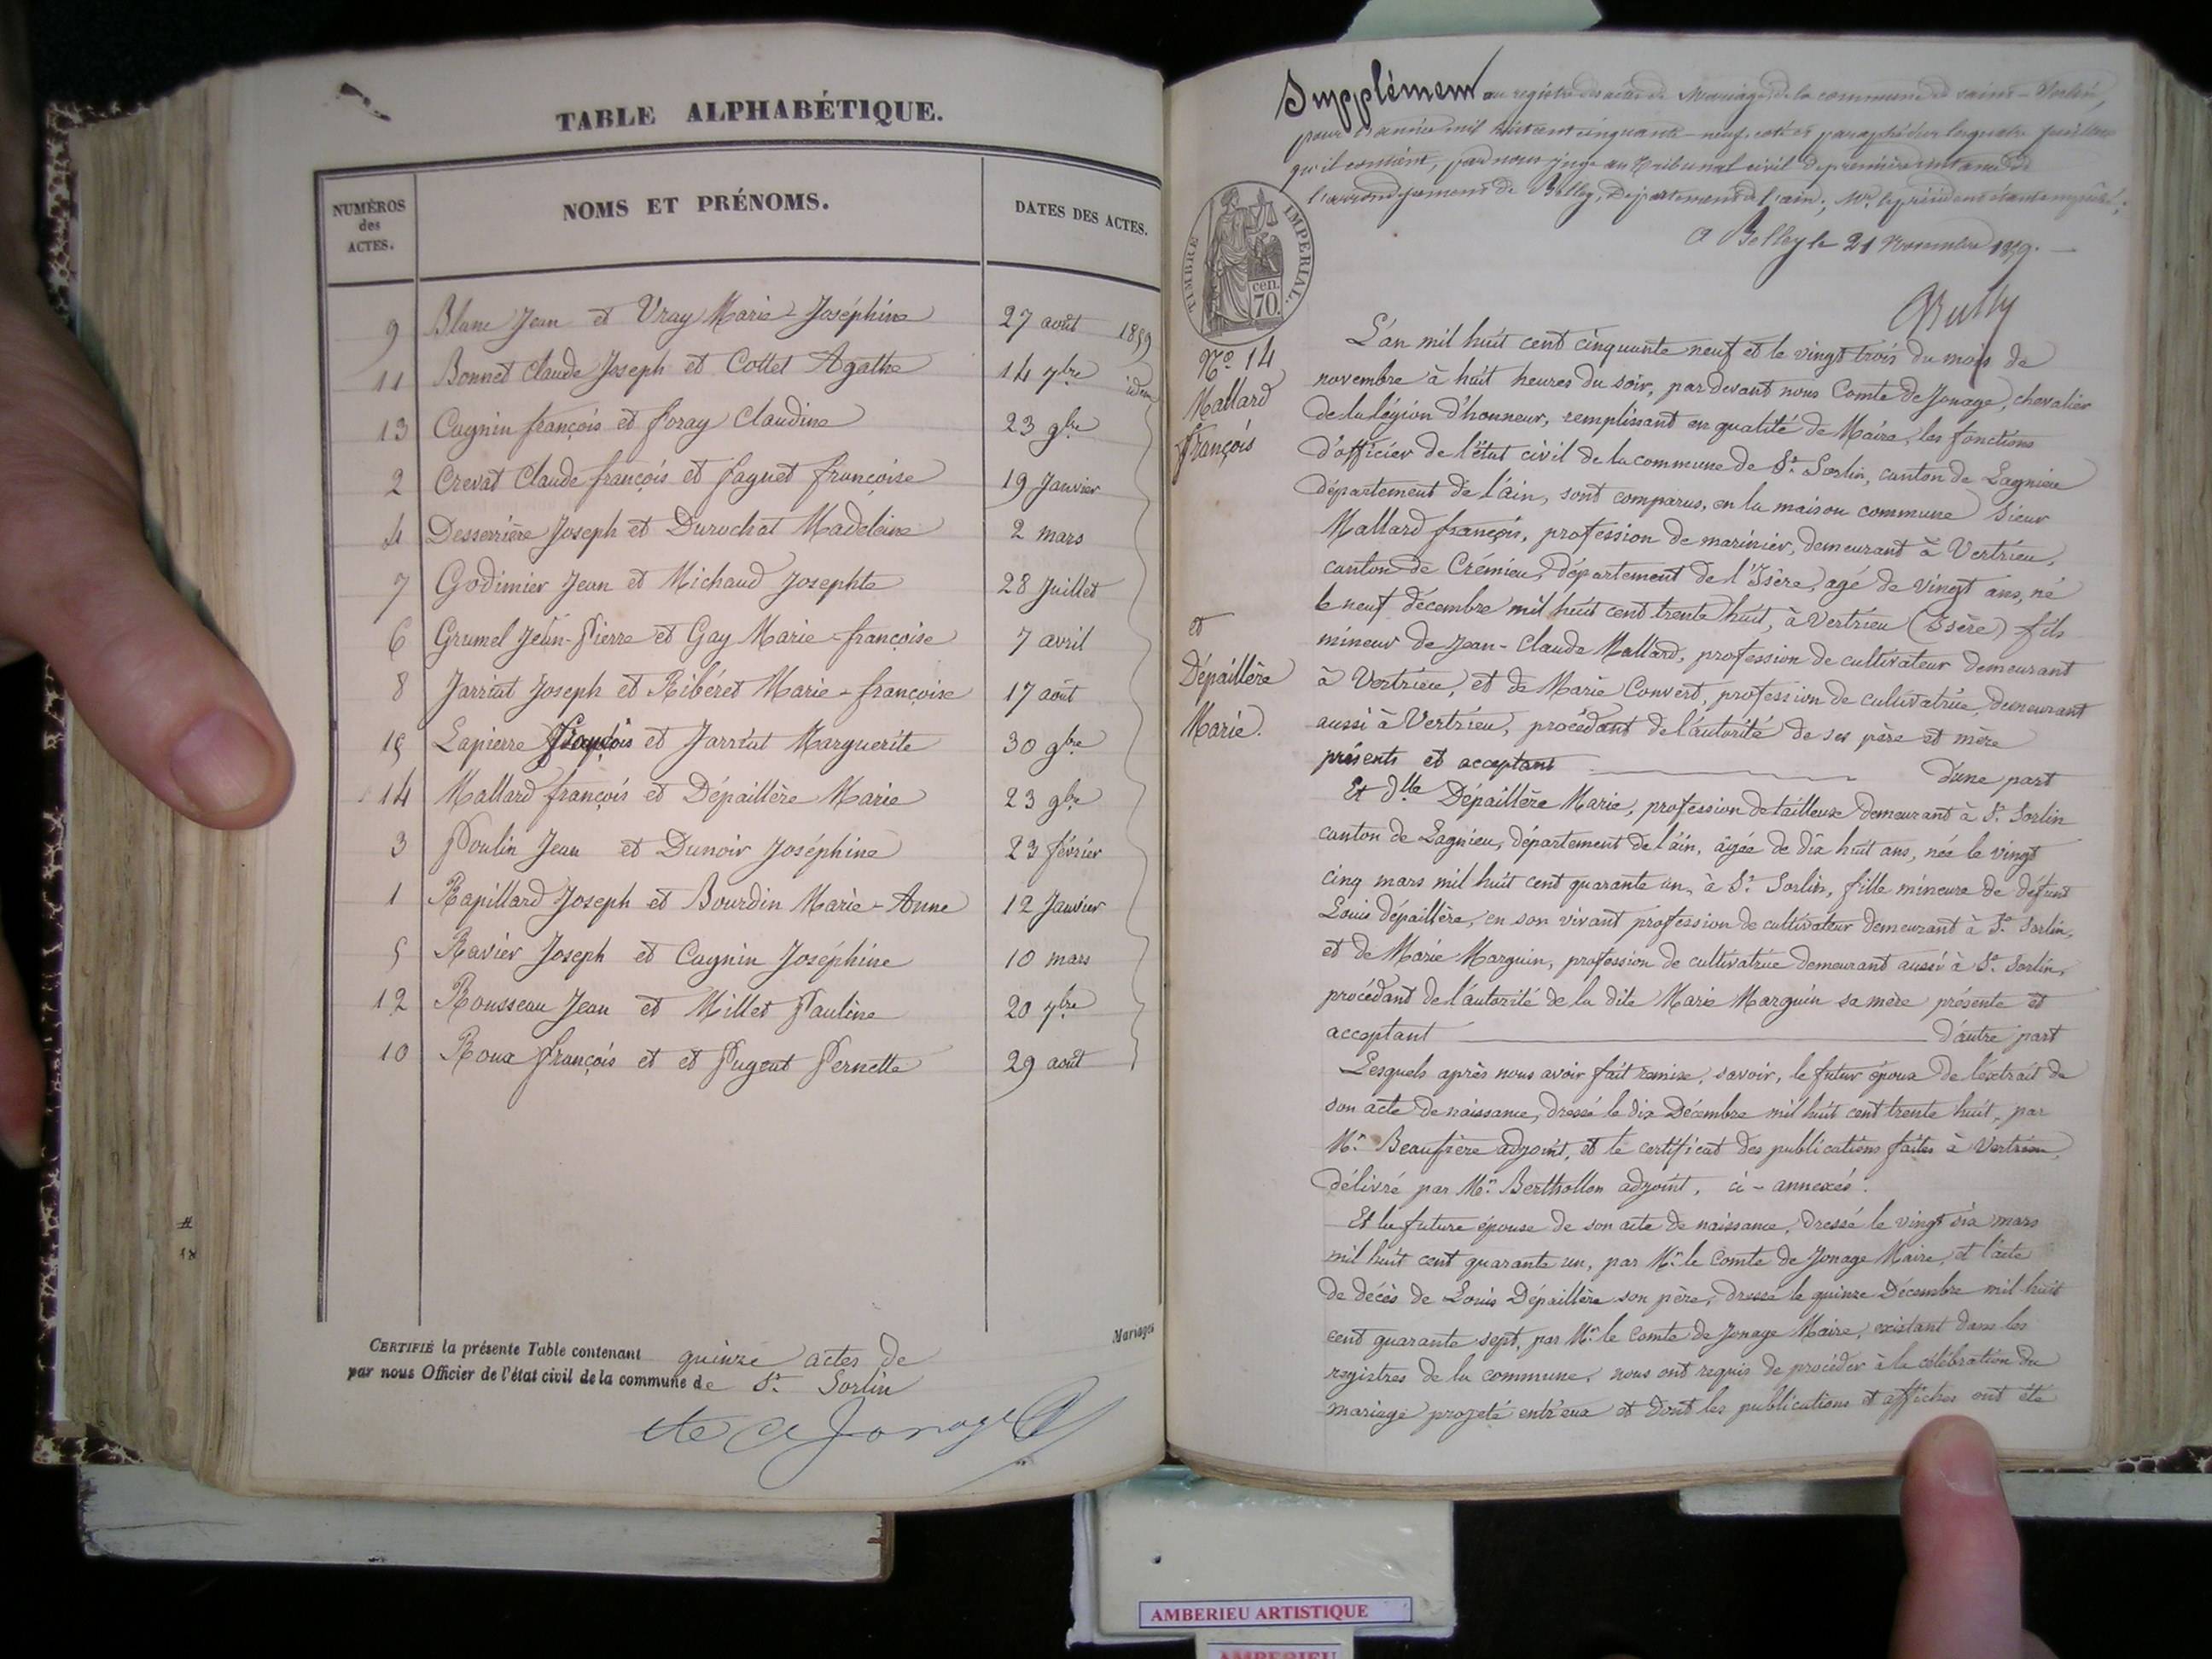 TABLE ALPHABÉTIQUE.
NUMÉROS des ACTES.
NOMS ET PRÉNOMS.
DATES DES ACTES.
9 Blanc Jean et Vray Marie-Joséphine 27 août 1859
11 Bonnet Claude Joseph et Cottet Agathe 14 7bre idem
13 Cagnin françois et foray Claudine 23 9bre
2 Crevat Claude françois et faguet françoise 19 Janvier
4 Desserrière Joseph et Durochat Madeleine 2 mars
7 Godimier Jean et Michaud Josephte 28 Juillet
6 Grumel Jean-Pierre et Gay Marie-françoise 7 avril
8 Jarriat Joseph et Ribéret Marie-françoise 17 août
15 Lapierre françois et Jarriat Marguerite 30 9bre
14 Mallard françois et Dépaillère Marie 23 9bre
3 Poulin Jean et Dunoir Joséphine 23 février
1 Rapillard Joseph et Bourdin Marie-Anne 12 Janvier
5 Ravier Joseph et Cagnin Joséphine 10 mars
12 Rousseau Jean et Millet Pauline 20 7bre
10 Roux françois et et Pugeat Pernette 29 août
Mariages
CERTIFIÉ la présente Table contenant quinze actes de
par nous Officier de l'état civil de la commune de St. Sorlin
cte de Jonage
Supplément au registre des actes de Mariage de la commune de saint-Sorlin,
pour l'année mil huit cent cinquante-neuf, coté et paraphé sur les quatre feuillets
qu'il contient, par nous juge au Tribunal civil de première instance de
l'arrondissement de Belley, Département de l'ain; Mr. le président étant empêché;
A Belley le 21 Novembre 1859.
TIMBRE IMPERIAL.
cen.
70.
No. 14
Mallard
François
et
Dépaillère
Marie.
L'an mil huit cent cinquante neuf et le vingt trois du mois de
novembre à huit heures du soir, par devant nous Comte de Jonage, chevalier
de la légion d'honneur, remplissant en qualité de Maire, les fonctions
d'officier de l'état civil de la commune de St. Sorlin, canton de Lagnieu
département de l'ain, sont comparus, en la maison commune Sieur
Mallard françois, profession de marinier, demeurant à Vertrieu,
canton de Crémieu, département de l'Isère, agé de vingt ans, né
le neuf décembre mil huit cent trente huit, à Vertrieu (Isère) fils
mineur de Jean-Claude Mallard, profession de cultivateur demeurant
à Vertrieu, et de Marie Convert, profession de cultivatrice, demeurant
aussi à Vertrieu, procédant de l'autorité de ses père et mère
présents et acceptant d'une part
Et Dlle Dépaillère Marie, profession de tailleuse demeurant à St. Sorlin
canton de Lagnieu, département de l'ain, âgée de dix huit ans, née le vingt
cinq mars mil huit cent quarante un, à St. Sorlin, fille mineure de défunt
Louis dépaillère, en son vivant profession de cultivateur demeurant à St. Sorlin,
et de Marie Marguin, profession de cultivatrice demeurant aussi à St. Sorlin,
procédant de l'autorité de la dite Marie Marguin sa mère présente et
acceptant d'autre part
Lesquels après nous avoir fait remise, savoir, le futur époux de l'extrait de
son acte de naissance, dressé le dix Décembre mil huit cent trente huit, par
Mr. Beaufrère adjoint, et le certificat des publications faites à Vertrieu,
délivré par Mr. Berthollon adjoint, ci-annexés.
Et la future épouse de son acte de naissance, dressé le vingt six mars
mil huit cent quarante un, par Mr. le Comte de Jonage Maire, et l'acte
de décès de Louis Dépaillère son père, dressé le quinze Décembre mil huit
cent quarante sept, par Mr. le Comte de Jonage Maire, existant dans les
registres de la commune, nous ont requis de procéder à la célébration du
mariage projeté entr'eux et dont les publications et affiches ont été
AMBERIEU ARTISTIQUE
AMBERIEU